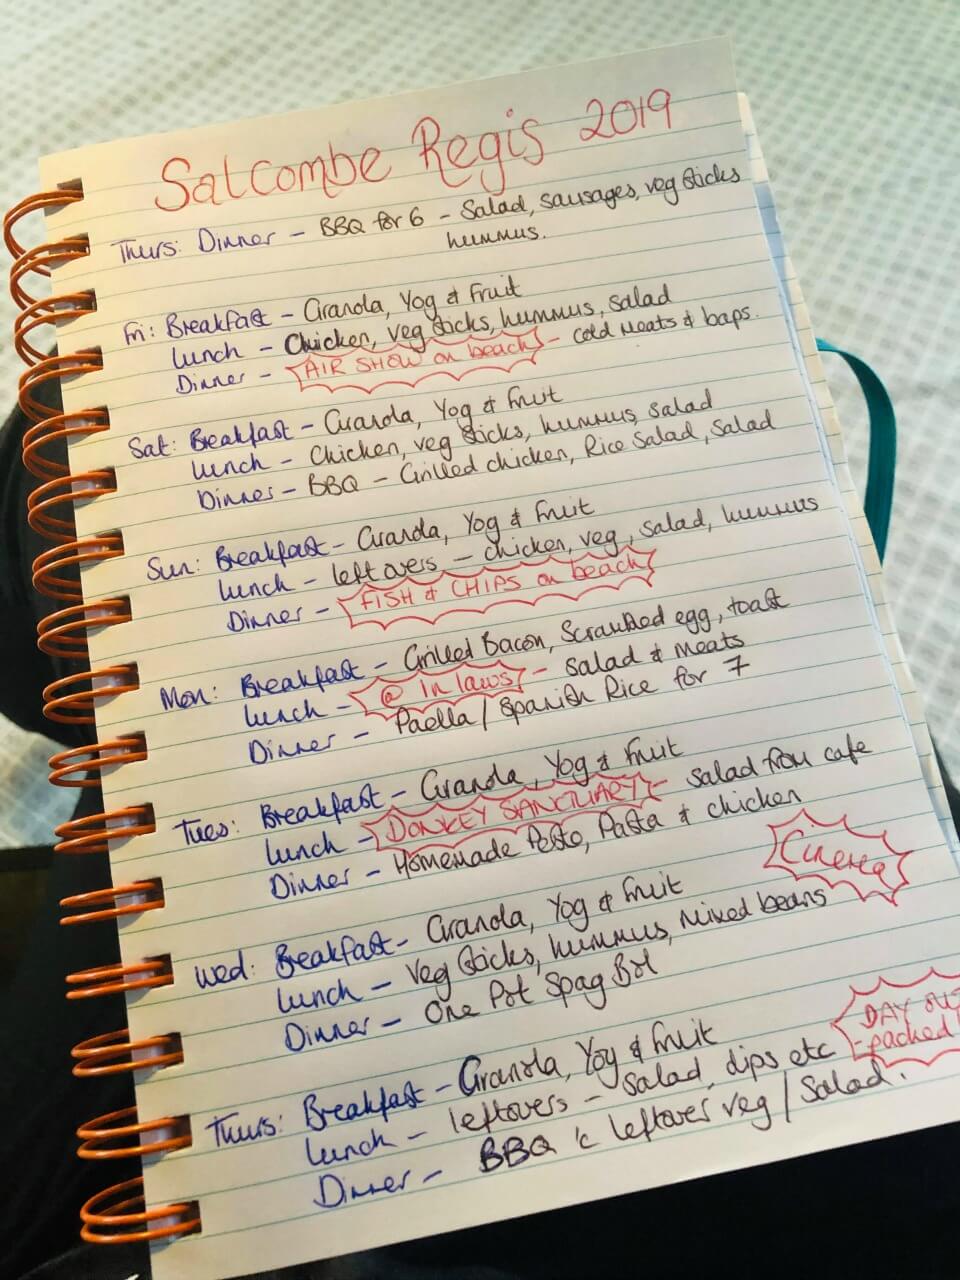 Salcombe Regis 2019
Thurs: Dinner – BBQ for 6 – Salad, sausages, veg sticks
hummus.
Fri: Breakfast – Granola, Yog & Fruit
Lunch – Chicken, veg sticks, hummus, salad
Dinner – AIR SHOW on beach – cold meats & baps.
Sat: Breakfast – Granola, Yog & Fruit
Lunch – Chicken, veg sticks, hummus, salad
Dinner – BBQ – Grilled chicken, Rice Salad, Salad
Sun: Breakfast – Granola, Yog & Fruit
Lunch – left overs – chicken, veg, salad, hummus
Dinner – FISH & CHIPS on beach
Mon: Breakfast – Grilled Bacon, Scrambled egg, toast
Lunch – @ In laws – salad & meats
Dinner – Paella / Spanish Rice for 7
Tues: Breakfast – Granola, Yog & Fruit
Lunch – DONKEY SANCTUARY – salad from cafe
Dinner – Homemade Pesto, Pasta & chicken
Cinema
Wed: Breakfast – Granola, Yog & Fruit
Lunch – Veg sticks, hummus, mixed beans
Dinner – One Pot Spag Bol
Thurs: Breakfast – Granola, Yog & Fruit
DAY
– packed
Lunch – leftovers – salad, dips etc
Dinner – BBQ c̄ leftover veg / Salad.